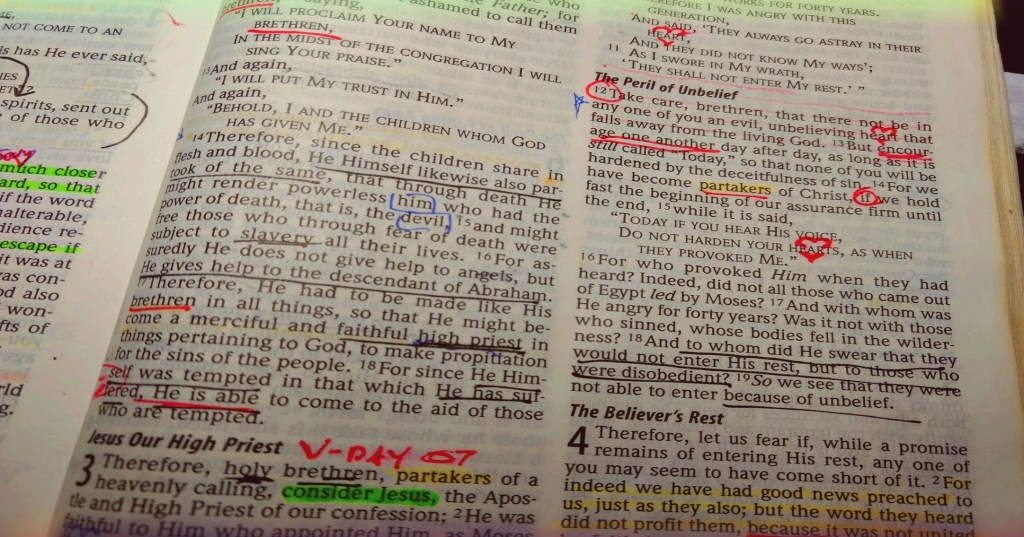 NOT COME TO AN
ls has He ever said,
spirits, sent out
of those who
much closer
ard, so that
if the word
nalterable,
dience re-
escape if
it was at
as con-
od also
won-
fts of
rld
g.
Father; for
ashamed to call them
brethren, saying,
"I WILL PROCLAIM YOUR NAME TO MY
BRETHREN,
IN THE MIDST OF THE CONGREGATION I WILL
SING YOUR PRAISE."
13And again,
"I WILL PUT MY TRUST IN HIM."
And again,
"BEHOLD, I AND THE CHILDREN WHOM GOD
HAS GIVEN ME."
14Therefore, since the children share in
flesh and blood, He Himself likewise also par-
took of the same, that through death He
might render powerless him who had the
power of death, that is, the devil, 15and might
free those who through fear of death were
subject to slavery all their lives. 16For as-
suredly He does not give help to angels, but
He gives help to the descendant of Abraham.
17Therefore, He had to be made like His
brethren in all things, so that He might be-
come a merciful and faithful high priest in
things pertaining to God, to make propitiation
for the sins of the people. 18For since He Him-
self was tempted in that which He has suf-
fered, He is able to come to the aid of those
who are tempted.
Jesus Our High Priest V-DAY 07
3 Therefore, holy brethren, partakers of a
heavenly calling, consider Jesus, the Apos-
tle and High Priest of our confession; 2He was
faithful to Him who appointed Him, as Moses
WORKS FOR FORTY YEARS.
THEREFORE I WAS ANGRY WITH THIS
GENERATION,
AND SAID, 'THEY ALWAYS GO ASTRAY IN THEIR
HEART,
AND THEY DID NOT KNOW MY WAYS';
11 AS I SWORE IN MY WRATH,
'THEY SHALL NOT ENTER MY REST.'"
The Peril of Unbelief
12Take care, brethren, that there not be in
any one of you an evil, unbelieving heart that
falls away from the living God. 13But encour-
age one another day after day, as long as it is
still called "Today," so that none of you will be
hardened by the deceitfulness of sin. 14For we
have become partakers of Christ, if we hold
fast the beginning of our assurance firm until
the end, 15while it is said,
"TODAY IF YOU HEAR HIS VOICE,
DO NOT HARDEN YOUR HEARTS, AS WHEN
THEY PROVOKED ME."
16For who provoked Him when they had
heard? Indeed, did not all those who came out
of Egypt led by Moses? 17And with whom was
He angry for forty years? Was it not with those
who sinned, whose bodies fell in the wilder-
ness? 18And to whom did He swear that they
would not enter His rest, but to those who
were disobedient? 19So we see that they were
not able to enter because of unbelief.
The Believer's Rest
4 Therefore, let us fear if, while a promise
remains of entering His rest, any one of
you may seem to have come short of it. 2For
indeed we have had good news preached to
us, just as they also; but the word they heard
did not profit them, because it was not united